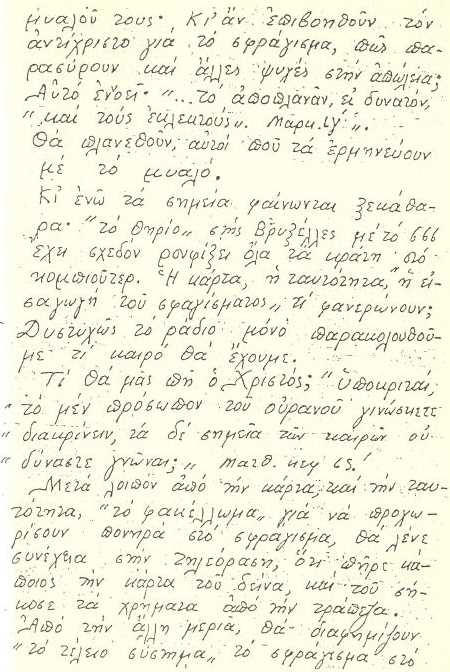 μυαλοῦ τους. Κι' ἄν ἐπιβοηθοῦν τόν
ἀντίχριστο γιά τό σφράγισμα, πῶς πα-
ρασύρουν καί ἄλλες ψυχές στήν ἀπώλεια;
Αὐτό ἐννοεῖ· "...τό ἀποπλανᾶν, εἰ δυνατόν,
"καί τούς ἐκλεκτούς". Μαρκ. ιγ'.
Θά πλανεθοῦν, αὐτοί πού τά ἑρμηνεύουν
μέ τό μυαλό.
Κι' ἐνῶ τά σημεῖα φαίνωνται ξεκάθα-
ρα· "τό θηρίο" στίς Βρυξέλλες μέ τό 666
ἔχει σχεδόν ρουφίξει ὅλα τά κράτη στό
κομπιοῦτερ. Ἡ κάρτα, ἡ ταυτότητα, ἡ εἰ-
σαγωγή τοῦ σφαγίσματος, τί φανερώνουν;
Δυστυχῶς τό ράδιο μόνο παρακολουθοῦ-
με τί καιρό θά ἔχουμε.
Τί θά μᾶς πῆ ὁ Χριστός; "ὑποκριταί,
"τό μέν πρόσωπον τοῦ οὐρανοῦ γινώσκετε
"διακρίνειν, τά δέ σημεῖα τῶν καιρῶν οὐ
"δύναστε γνῶναι;" Ματθ. κεφ
Μετά λοιπόν ἀπό τήν κάρτα καί τήν ταυ-
τότητα, "τό φακέλλωμα" γιά νά προχω-
ρίσουν πονηρά στό σφράγισμα, θά λένε
συνέχεια στήν τηλεόραση, ὅτι πῆρε κά-
ποιος τήν κάρτα τοῦ δείνα, καί τοῦ σή-
κωσε τά χρήματα ἀπό τήν τράπεζα.
Ἀπό τήν ἄλλη μεριά, θά διαφημίζουν
"τό τέλειο σύστημα" τό σφράγισμα στό